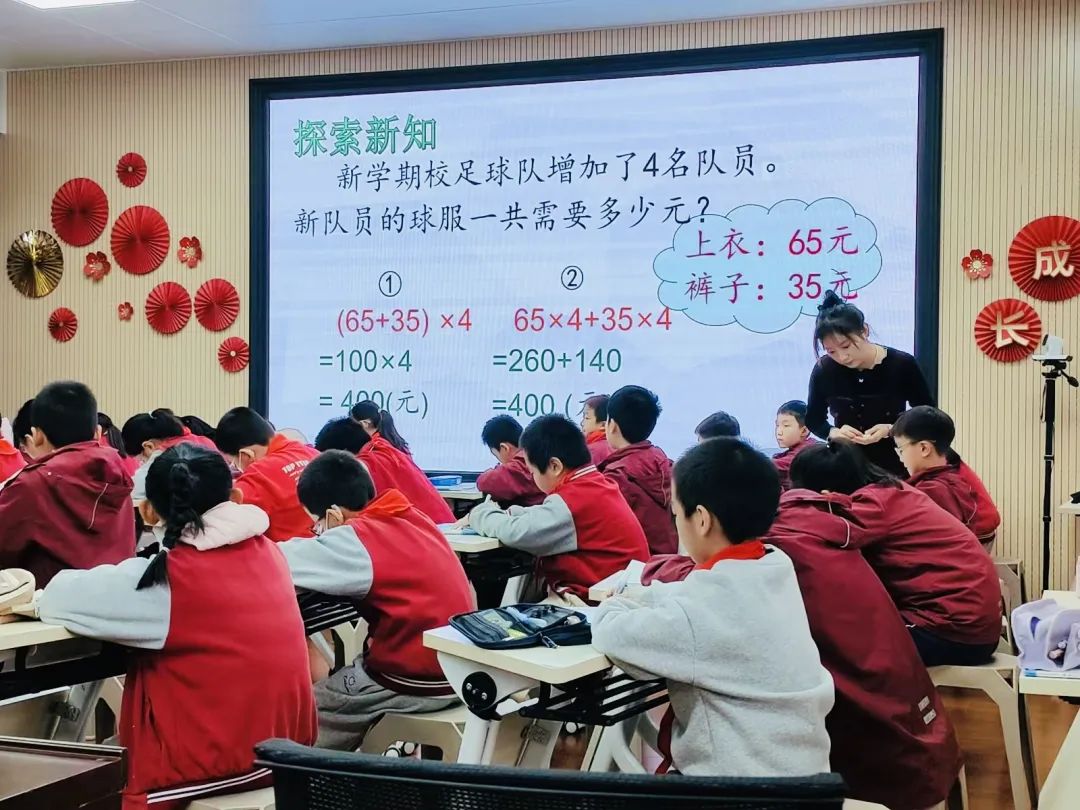 探索新知
新学期校足球队增加了4名队员。
新队员的球服一共需要多少元？
上衣：65元
裤子：35元
① ②
(65+35) ×4 65×4+35×4
=100×4 =260+140
= 400(元) =400 (元
成
长